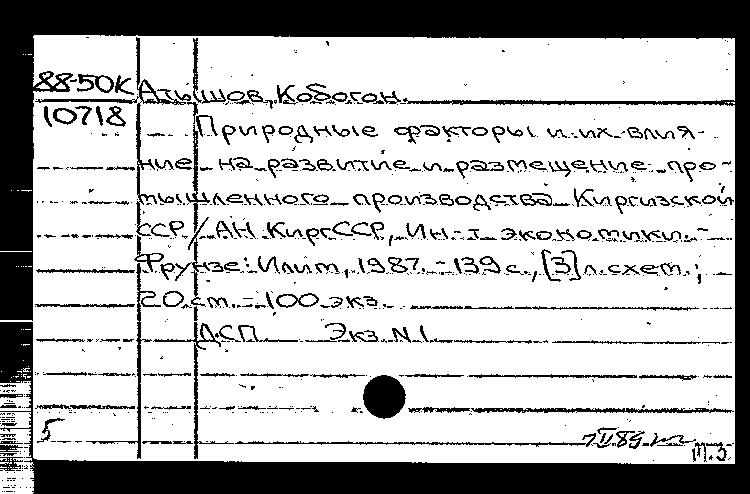 88-50К
10718
Атышов, Кобогон.
Природные факторы и их влия-
ние на развитие и размещение про-
мышленного производства Киргизской
ССР / АН КиргССР, Ин-т экономики. -
Фрунзе: Илим, 1987. - 139 с., [3] л. схем.;
20 см. - 100 экз.
ДСП Экз. N 1
5
7 II 89